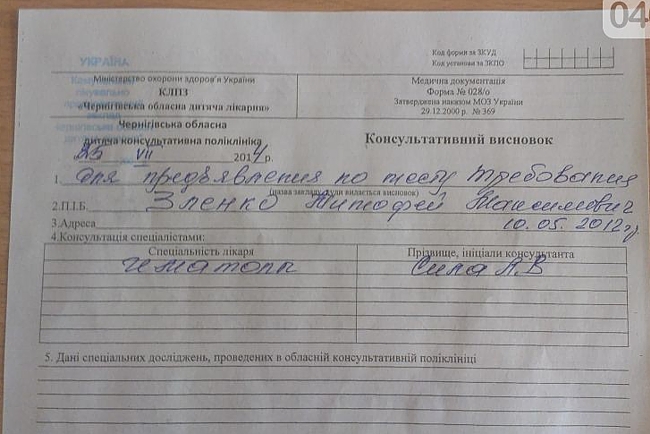 04
УКРАЇНА
Код форми за ЗКУД
Код установи за ЗКПО
Міністерство охорони здоров'я України
КЛПЗ
«Чернігівська обласна дитяча лікарня»
Медична документація
Форма № 028/о
Затверджена наказом МОЗ України
29.12.2000 р. № 369
Чернігівська обласна
дитяча консультативна поліклініка
Консультативний висновок
25 VII 2014 р.
1. Для предъявления по месту требования
(назва закладу куди видається висновок)
2.П.І.Б. Зленко Тимофей Максимович
3.Адреса 10.05.2012 г
4.Консультація спеціалістами:
Спеціальність лікаря
Прізвище, ініціали консультанта
гематолог
Сила А.В
5. Дані спеціальних досліджень, проведених в обласній консультативній поліклініці